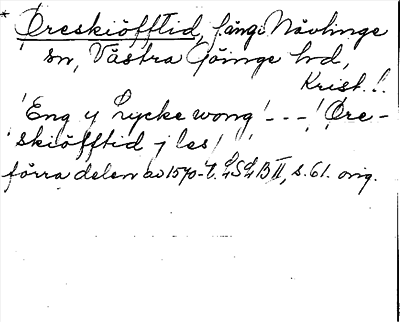 * Öreskiöfftid, fång i Nävlinge
sn, Västra Göinge hd,
Krist. l.
'Eng y Lycke wong' - - - 'Öre-
skiöfftid j les'
förra delen av 1570-t. LSLB II, s. 61. orig.